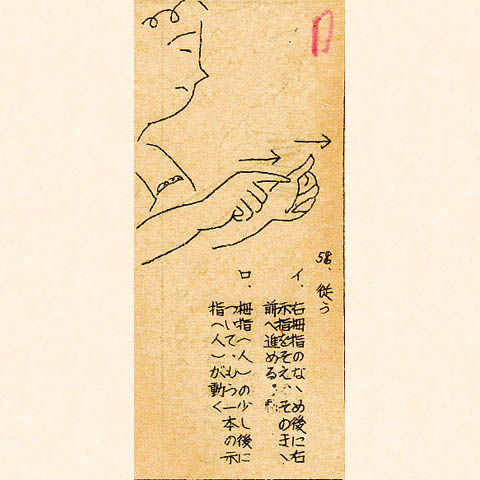 58、従う
イ、右拇指のなゝめ後に右
示指をそえ、そのまゝ
前へ進める。
ロ、拇指(人)の少し後に
ついて、もう一本の示
指(人)が動く